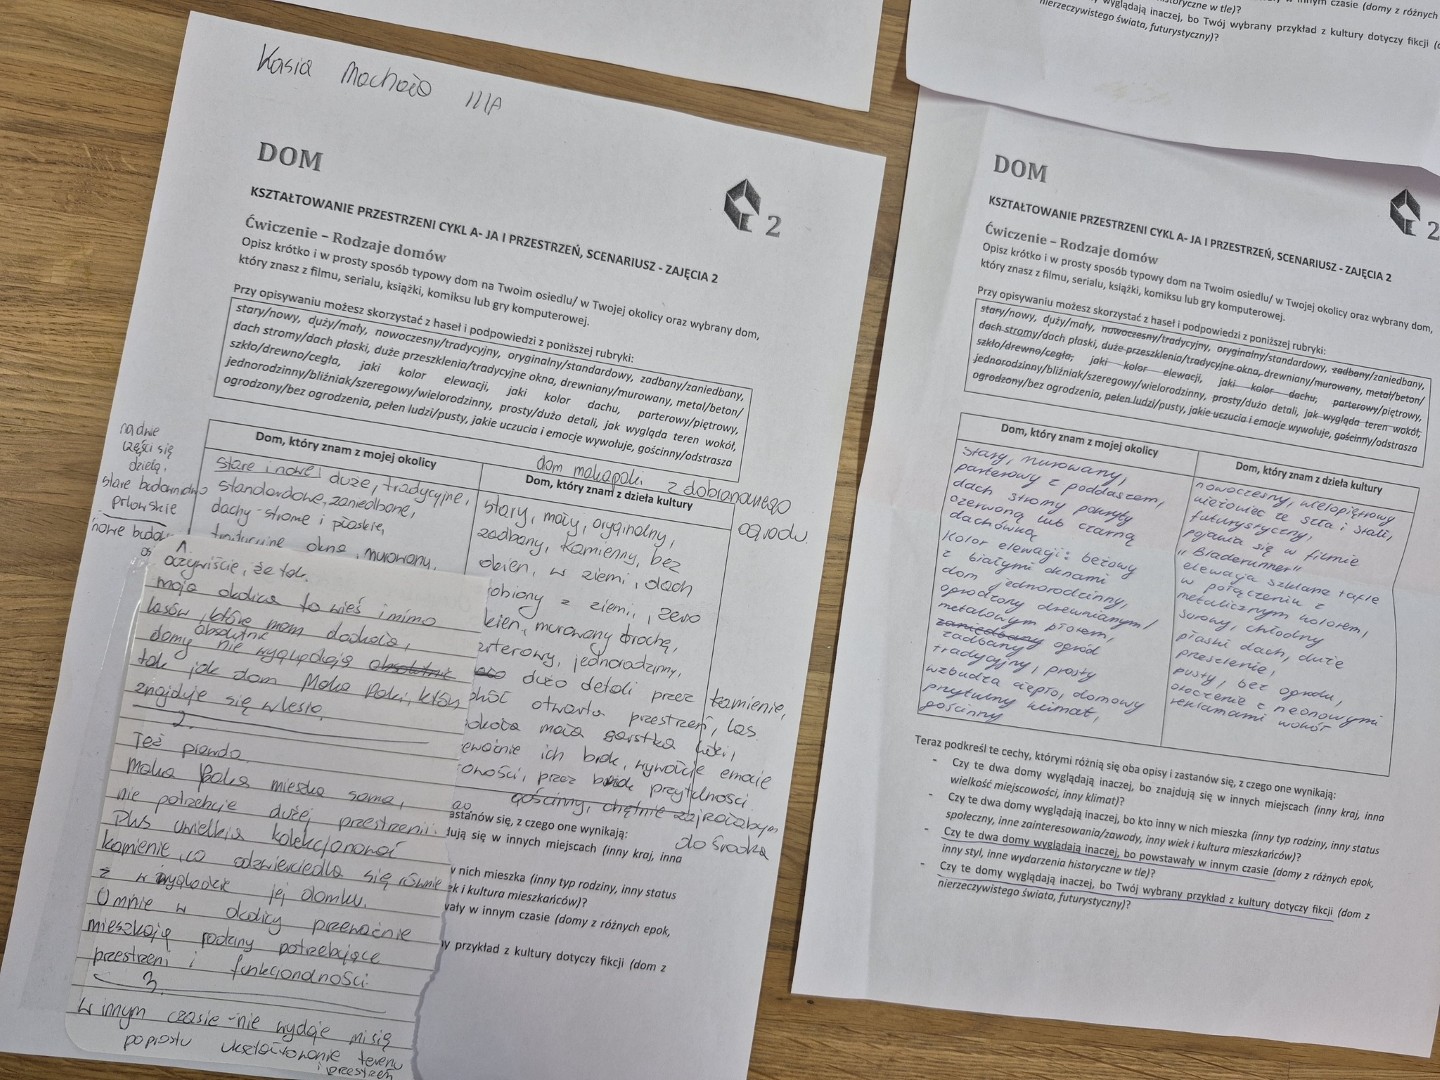 Kasia IIIA
DOM
2
KSZTAŁTOWANIE PRZESTRZENI CYKL A- JA I PRZESTRZEŃ, SCENARIUSZ - ZAJĘCIA 2
Ćwiczenie – Rodzaje domów
Opisz krótko i w prosty sposób typowy dom na Twoim osiedlu/ w Twojej okolicy oraz wybrany dom,
który znasz z filmu, serialu, książki, komiksu lub gry komputerowej.
Przy opisywaniu możesz skorzystać z haseł i podpowiedzi z poniższej rubryki:
stary/nowy, duży/mały, nowoczesny/tradycyjny, oryginalny/standardowy, zadbany/zaniedbany,
dach stromy/dach płaski, duże przeszklenia/tradycyjne okna, drewniany/murowany, metal/beton/
szkło/drewno/cegła, jaki kolor elewacji, jaki kolor dachu, parterowy/piętrowy,
jednorodzinny/bliźniak/szeregowy/wielorodzinny, prosty/dużo detali, jak wygląda teren wokół,
ogrodzony/bez ogrodzenia, pełen ludzi/pusty, jakie uczucia i emocje wywołuje, gościnny/odstrasza
Dom, który znam z mojej okolicy
na dwie
części się
dzielą,
stare budownictwo
prlowskie
nowe
stare i nowe, duże, tradycyjne,
standardowe, zaniedbane,
dachy - strome i płaskie,
tradycyjne okna, murowany,
dom mokopoki z dobranocnego
ogrodu
Dom, który znam z dzieła kultury
stary, mały, oryginalny,
zadbany, kamienny, bez
okien, w ziemi, dach
zrobiony z ziemi, zero
okien, murowany trochę,
parterowy, jednorodzinny,
dużo detali przez kamienie,
otwarta przestrzeń, las
dookoła mała garstka ludzi,
ich brak, wywołuje emocje
przez przytulności.
gościnny, chętnie zajrzałabym
do środka
Oczywiście, że tak.
moja okolica to wieś i mimo
lasów, które mam dookoła,
domy absolutnie nie wyglądają absolutnie
tak jak dom Moka Poki, który
znajduje się w lesie.
2.
Też prawda.
Moka Poka mieszka sama,
nie potrzebuje dużej przestrzeni.
Plus uwielbia kolekcjonować
kamienie, co odzwierciedla się również
z wyglądzie jej domku.
U mnie w okolicy przeważnie
mieszkają rodziny potrzebujące
przestrzeni i funkcjonalności.
3.
w innym czasie - nie wydaje mi się
poprostu ukształtowanie terenu
i przestrzeń
zastanów się, z czego one wynikają:
dują się w innych miejscach (inny kraj, inna
w nich mieszka (inny typ rodziny, inny status
ek i kultura mieszkańców)?
wały w innym czasie (domy z różnych epok,
y przykład z kultury dotyczy fikcji (dom z
w innym czasie (domy z różnych
historyczne w tle)?
wyglądają inaczej, bo Twój wybrany przykład z kultury dotyczy fikcji
nierzeczywistego świata, futurystyczny)?
DOM
2
KSZTAŁTOWANIE PRZESTRZENI CYKL A- JA I PRZESTRZEŃ, SCENARIUSZ - ZAJĘCIA 2
Ćwiczenie – Rodzaje domów
Opisz krótko i w prosty sposób typowy dom na Twoim osiedlu/ w Twojej okolicy oraz wybrany dom,
który znasz z filmu, serialu, książki, komiksu lub gry komputerowej.
Przy opisywaniu możesz skorzystać z haseł i podpowiedzi z poniższej rubryki:
stary/nowy, duży/mały, nowoczesny/tradycyjny, oryginalny/standardowy, zadbany/zaniedbany,
dach stromy/dach płaski, duże przeszklenia/tradycyjne okna, drewniany/murowany, metal/beton/
szkło/drewno/cegła, jaki kolor elewacji, jaki kolor dachu, parterowy/piętrowy,
jednorodzinny/bliźniak/szeregowy/wielorodzinny, prosty/dużo detali, jak wygląda teren wokół,
ogrodzony/bez ogrodzenia, pełen ludzi/pusty, jakie uczucia i emocje wywołuje, gościnny/odstrasza
Dom, który znam z mojej okolicy
stary, murowany,
parterowy z poddaszem,
dach stromy pokryty
czerwoną lub czarną
dachówką
kolor elewacji: beżowy
z białymi oknami
dom jednorodzinny,
ogrodzony drewnianym/
metalowym płotem,
zaniedbany ogród
zadbany
tradycyjny, prosty
wzbudza ciepło, domowy
przytulny klimat,
gościnny
Dom, który znam z dzieła kultury
nowoczesny, wielopiętrowy
wieżowiec ze szkła i stali,
futurystyczny,
pojawia się w filmie
"Bladerunner"
elewacja szklane tafle
w połączeniu z
metalicznym kolorem,
surowy, chłodny
płaski dach, duże
przeszklenie,
pusty, bez ogrodu,
otoczenie z neonowymi
reklamami wokół
Teraz podkreśl te cechy, którymi różnią się oba opisy i zastanów się, z czego one wynikają:
- Czy te dwa domy wyglądają inaczej, bo znajdują się w innych miejscach (inny kraj, inna
wielkość miejscowości, inny klimat)?
- Czy te dwa domy wyglądają inaczej, bo kto inny w nich mieszka (inny typ rodziny, inny status
społeczny, inne zainteresowania/zawody, inny wiek i kultura mieszkańców)?
- Czy te dwa domy wyglądają inaczej, bo powstawały w innym czasie (domy z różnych epok,
inny styl, inne wydarzenia historyczne w tle)?
- Czy te domy wyglądają inaczej, bo Twój wybrany przykład z kultury dotyczy fikcji (dom z
nierzeczywistego świata, futurystyczny)?